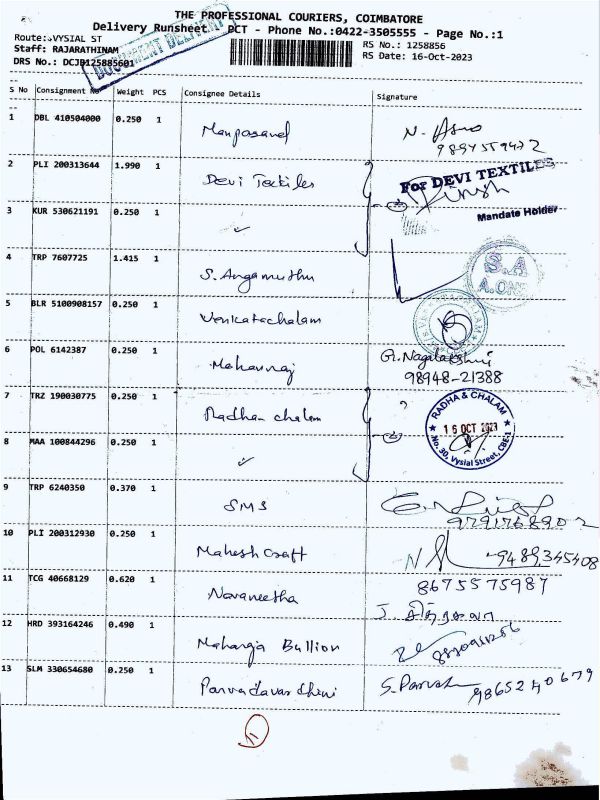 THE PROFESSIONAL COURIERS, COIMBATORE
Delivery Runsheet DCT - Phone No.:0422-3505555 - Page No.:1
Route: VYSIAL ST
RS No.: 1258856
Staff: RAJARATHINAM
RS Date: 16-Oct-2023
DRS No.: DCJB125885601
DOCUMENT DELIVERY
S No Consignment No Weight PCS Consignee Details Signature
1 DBL 410504000 0.250 1
2 PLI 200313644 1.990 1 Devi Textiles For DEVI TEXTILES
Mandate Holder
3 KUR 530621191 0.250 1 ✓
4 TRP 7607725 1.415 1 S. Angamuthu S.A A.ONE
5 BLR 5100908157 0.250 1 Venkatachalam
6 POL 6142387 0.250 1 G. Nagalakshmi
98948-21388
7 TRZ 190030775 0.250 1 Radhan chalam RADHA & CHALAM
16 OCT 2023
No. 30, Vysial Street, CBE-1
8 MAA 100844296 0.250 1 ✓
9 TRP 6240350 0.370 1 SMS
9791768902
10 PLI 200312930 0.250 1 Mahesh Craft 9489345408
11 TCG 40668129 0.620 1 Navaneetha 8675575987
12 HRD 393164246 0.490 1 Maharaja Bullion
13 SLM 330654680 0.250 1 Parvadavardhini S. Parvath 9865240679
11